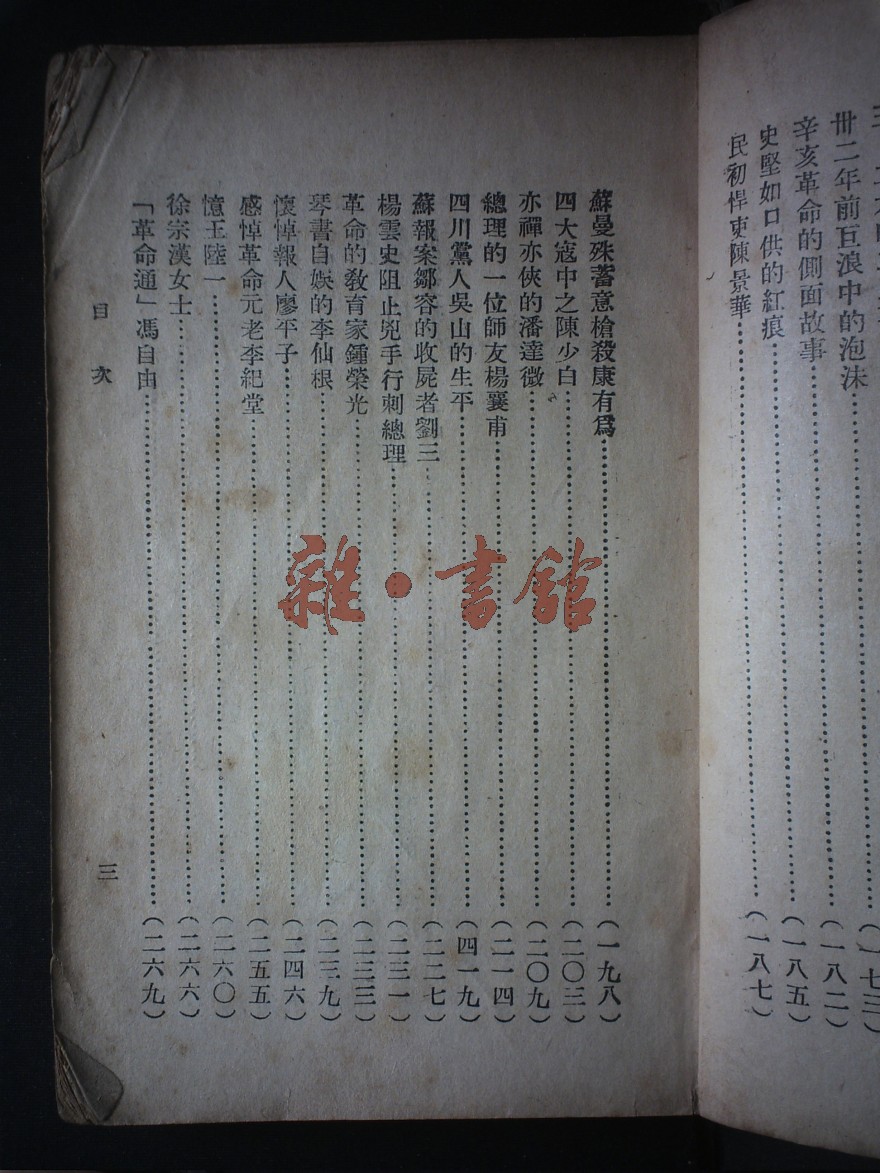 卅二年前巨浪中的泡沫(一七三)
辛亥革命的側面故事(一八二)
史堅如口供的紅痕(一八五)
民初悍吏陳景華(一八七)
蘇曼殊蓄意槍殺康有爲(一九八)
四大寇中之陳少白(二〇三)
亦禪亦俠的潘達微(二〇九)
總理的一位師友楊襄甫(二一四)
四川黨人吳山的生平(四一九)
蘇報案鄒容的收屍者劉三(二二七)
楊雲史阻止兇手行刺總理(二三一)
革命的敎育家鍾榮光(二三三)
琴書自娛的李仙根(二三九)
懷悼報人廖平子(二四六)
感悼革命元老李紀堂(二五五)
憶王陸一(二六〇)
徐宗漢女士(二六六)
「革命通」馮自由(二六九)
目次 三
雜·書館